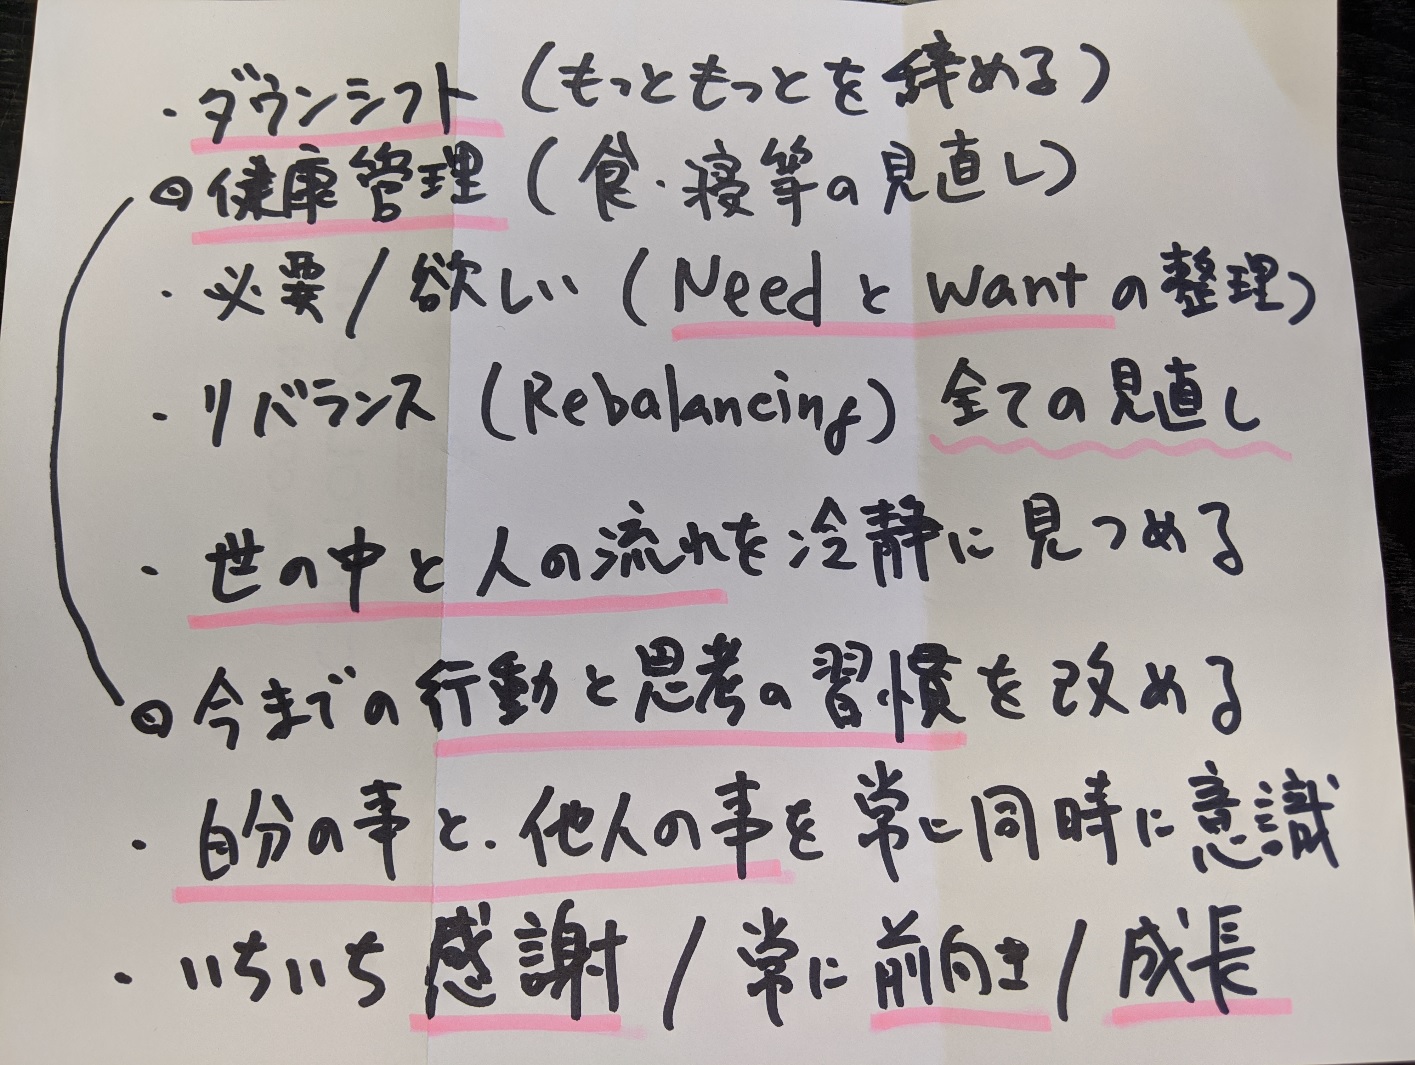 ・ダウンシフト（もっともっとを辞める）
◎健康管理（食・寝等の見直し）
・必要/欲しい（Need と Want の整理）
・リバランス（Rebalancing）全ての見直し
・世の中と人の流れを冷静に見つめる
◎今までの行動と思考の習慣を改める
・自分の事と、他人の事を常に同時に意識
・いちいち感謝/常に前向き/成長